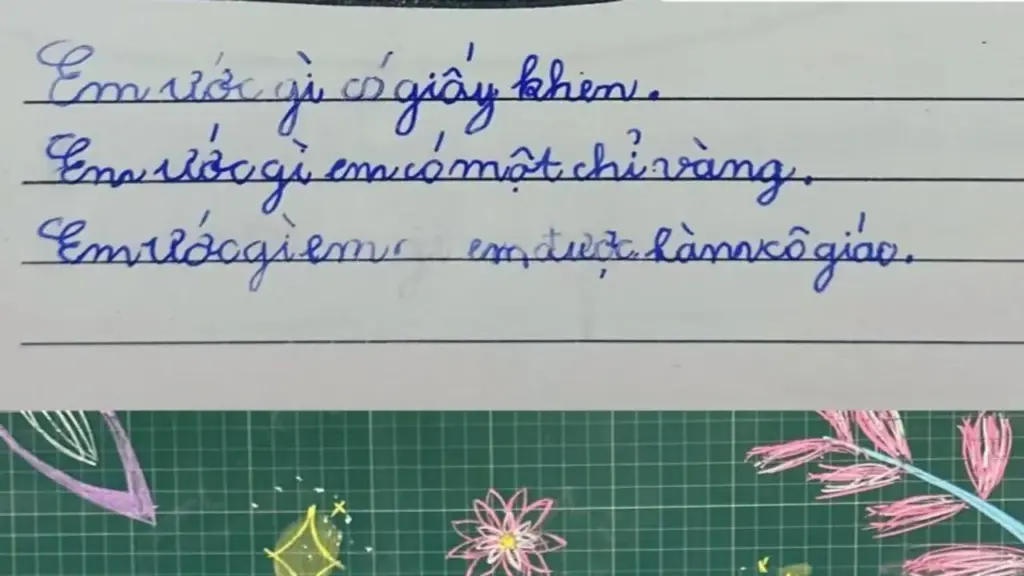 Em ước gì có giấy khen.
Em ước gì em có một chỉ vàng.
Em ước gì em em được làm cô giáo.